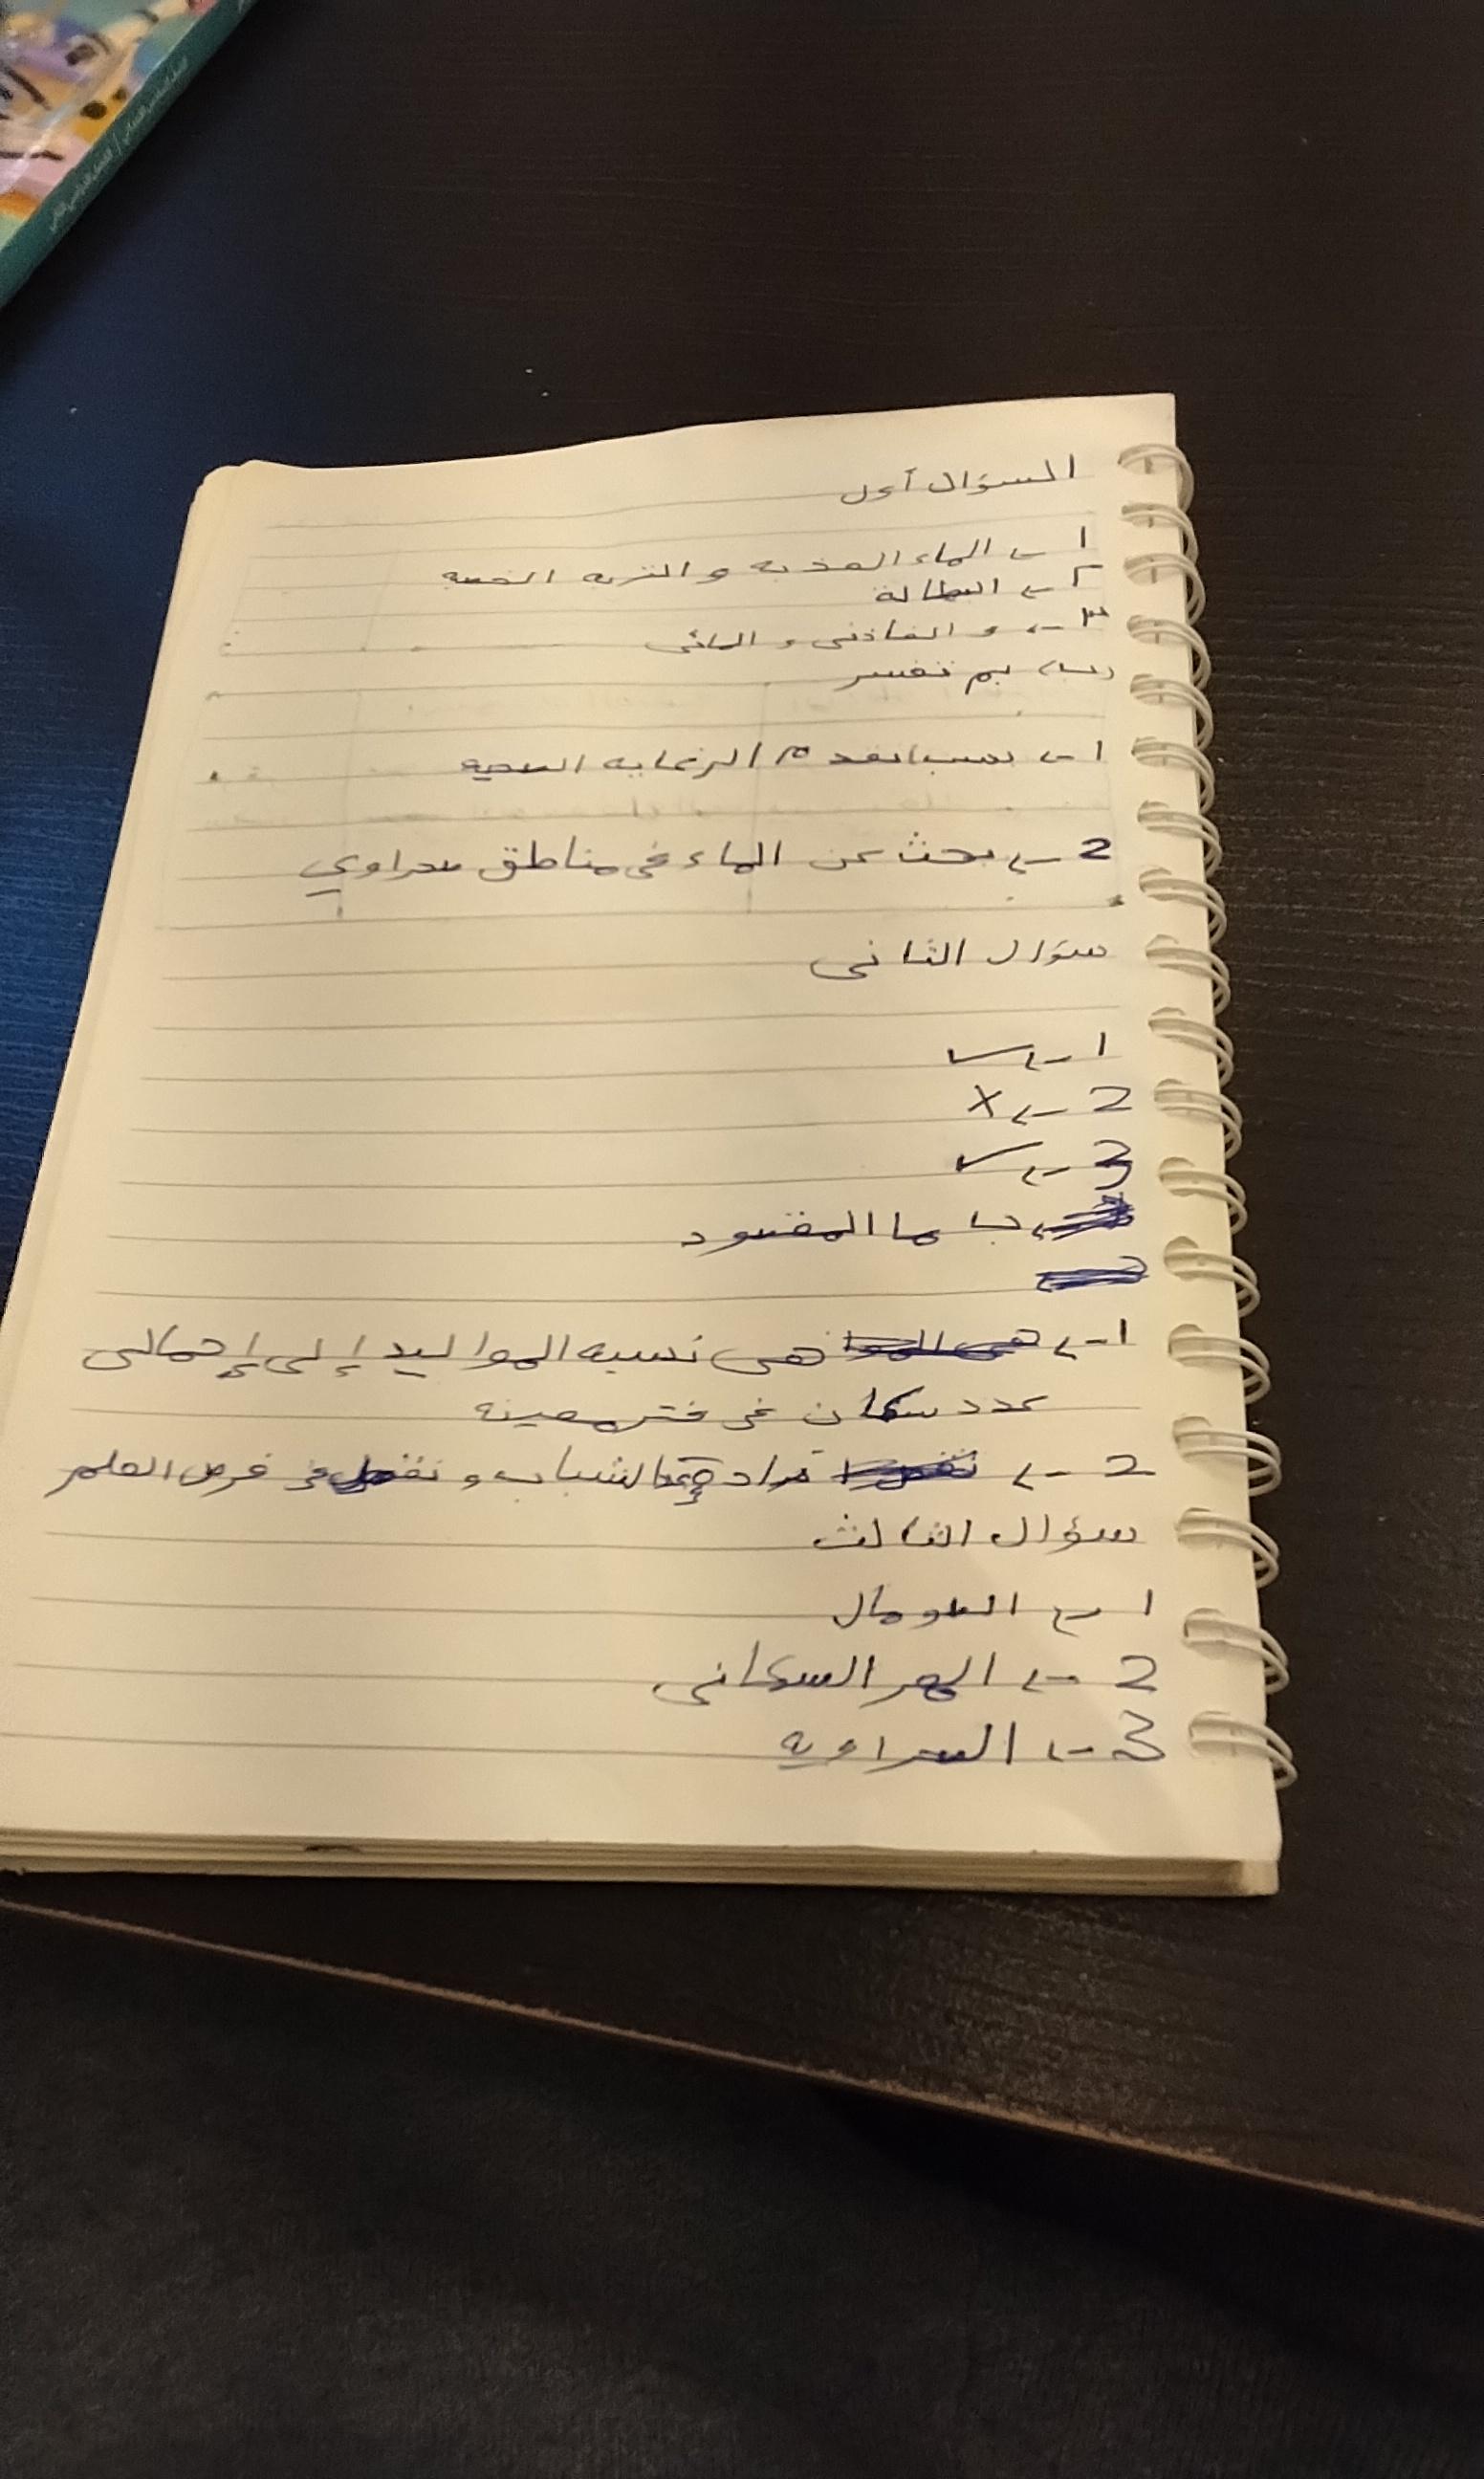 السؤال أول
1 -> الماء العذبه و التربه الخصبه
2 -> البطالة
3 -> و الغاذئى و المائى
ب -> بم تفسر
1 -> بسبب انعدم الرعايه الصحيه
2 -> بحث عن الماء فى مناطق صحراوي
سؤال الثانى
1 -> ✓
2 -> X
3 -> ✓
ب ما المقصود
1 -> هى نسبه المواليد إلى إجمالى
عدد سكان فى فتر معينه
2 -> الشباب و نقص فى فرص العلم
سؤال الثالث
1 -> الصومال
2 -> الهرم السكانى
3 -> الصحراويه